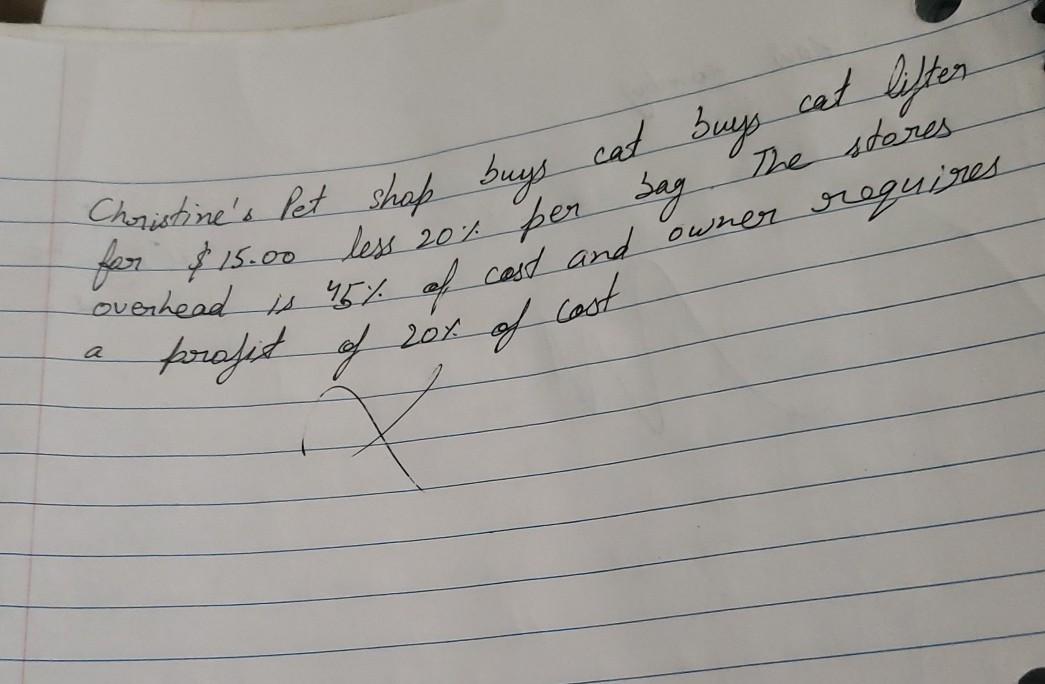 Christine's Pet shop buys cat buys cat lifter
for $15.00 less 20% per bag. The stores
overhead is 45% of cost and owner requires
a profit of 20% of cost